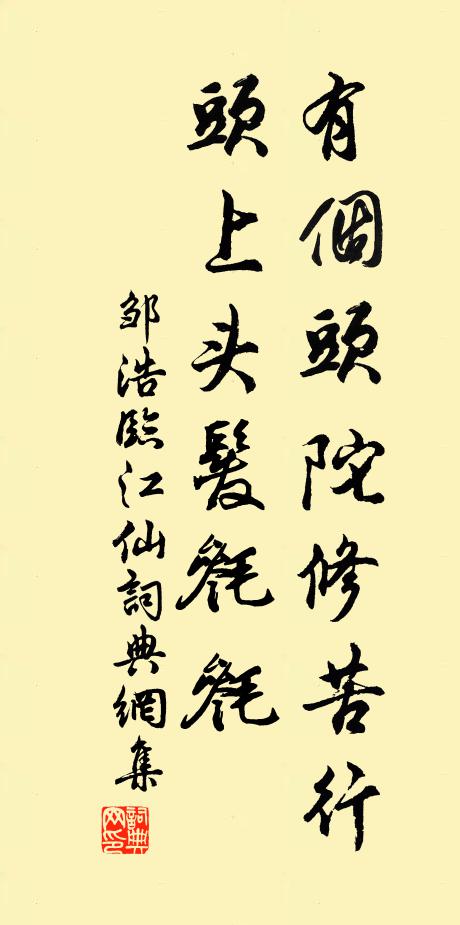 有個頭陀修苦行
頭上头髮毿毿
邹浩臨江仙詞典網集
詞典
网印